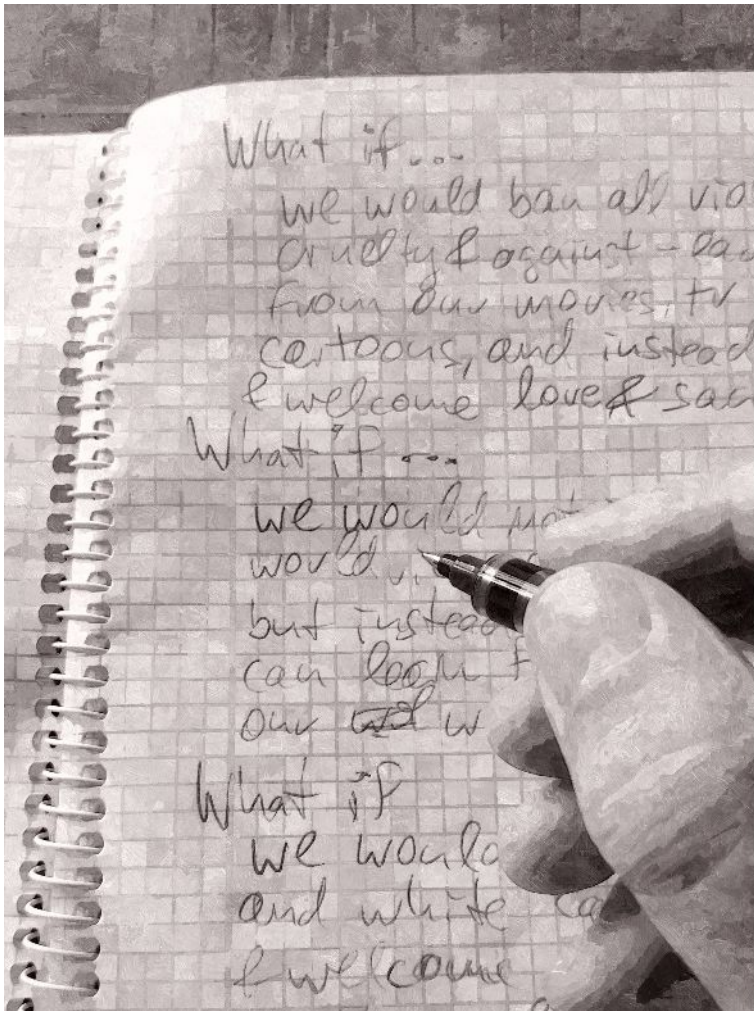 What if...
we would ban all vio
cruelty & against-
from our movies, tv
cartoons, and instead
& welcome love &
What if...
we would
would
but instead
can
our w
What if
we would
and white ca
& welcome